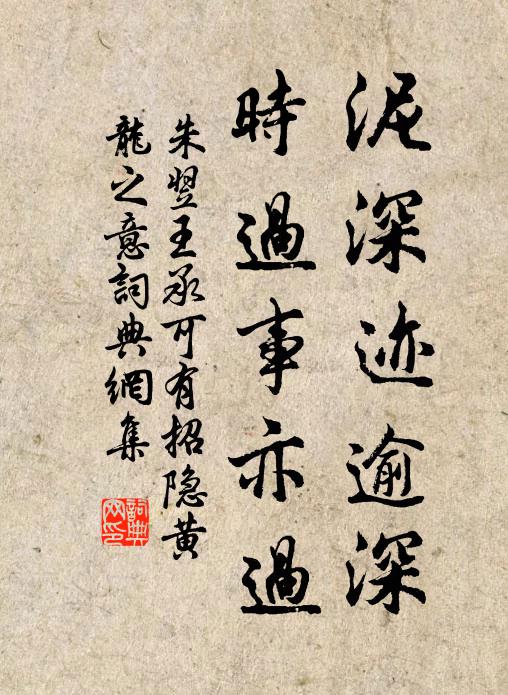 泥深迹逾深
時過事亦過
朱翌王承可有招隐黄
龍之意詞典網集
詞典网印